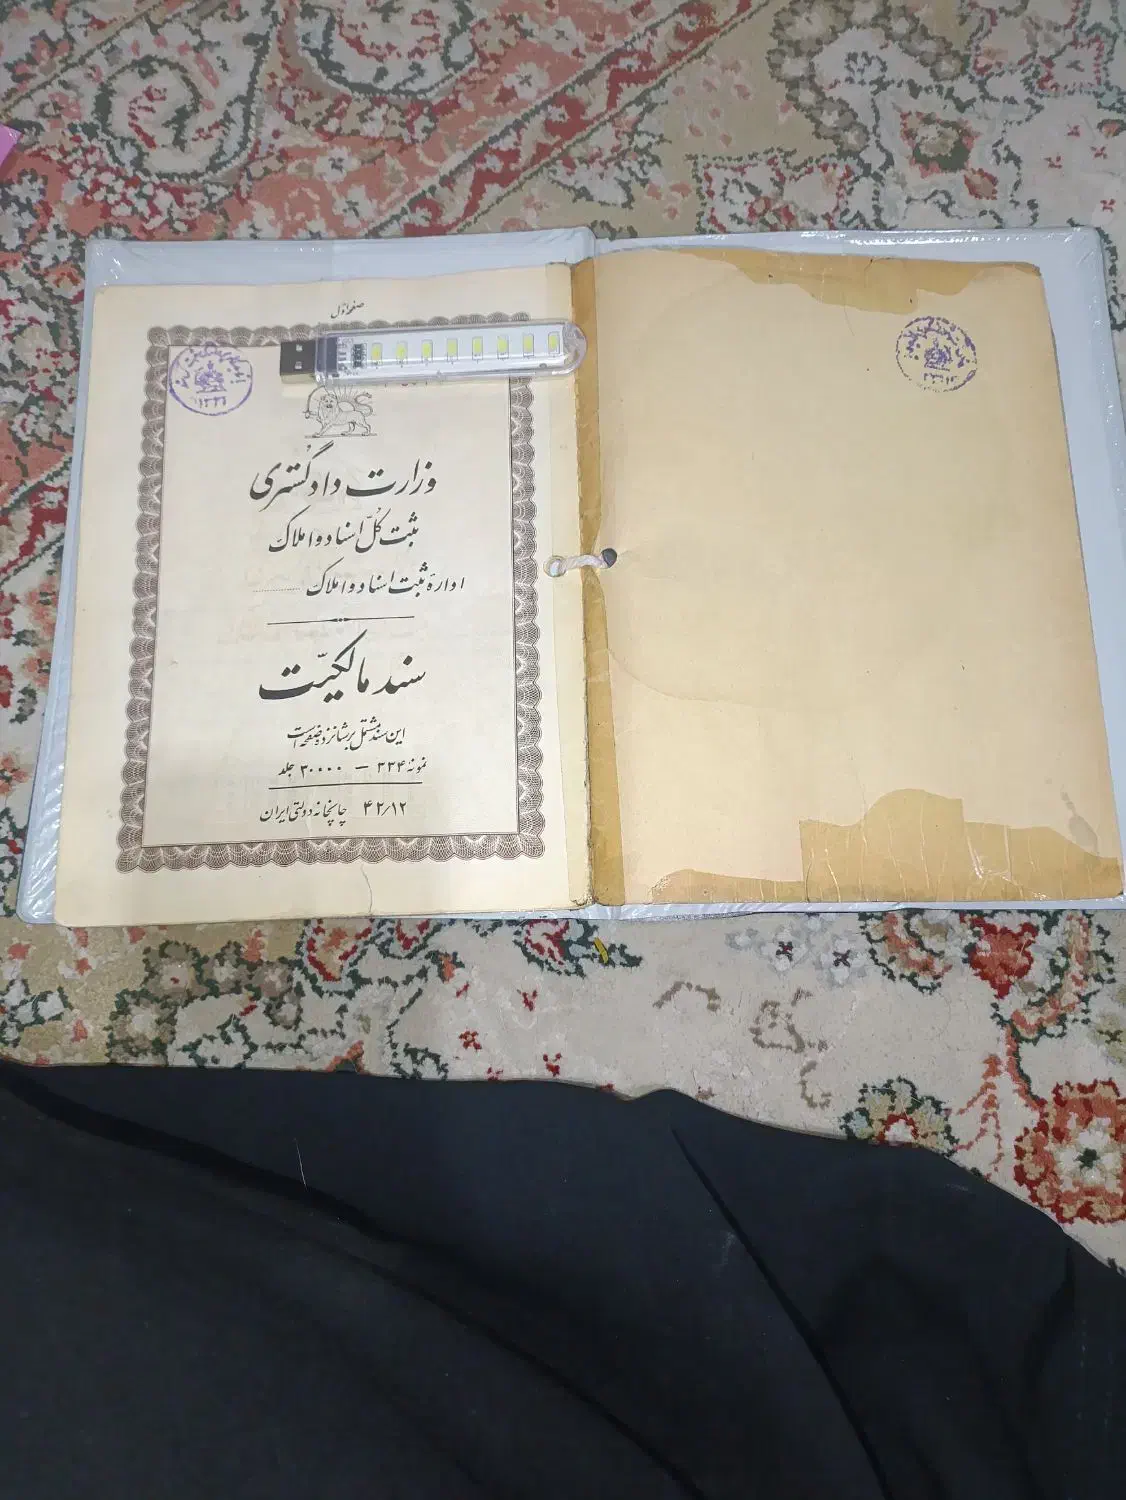 صفحه اول
وزارت دادگستری
ثبت کل اسناد و املاک
اداره ثبت اسناد و املاک ............
سند مالکیّت
این سند مشتمل بر شانزده صفحه است
نمونه ۳۳۴ — ۳۰۰۰۰ جلد
۴۲/۱۲ چاپخانه دولتی ایران